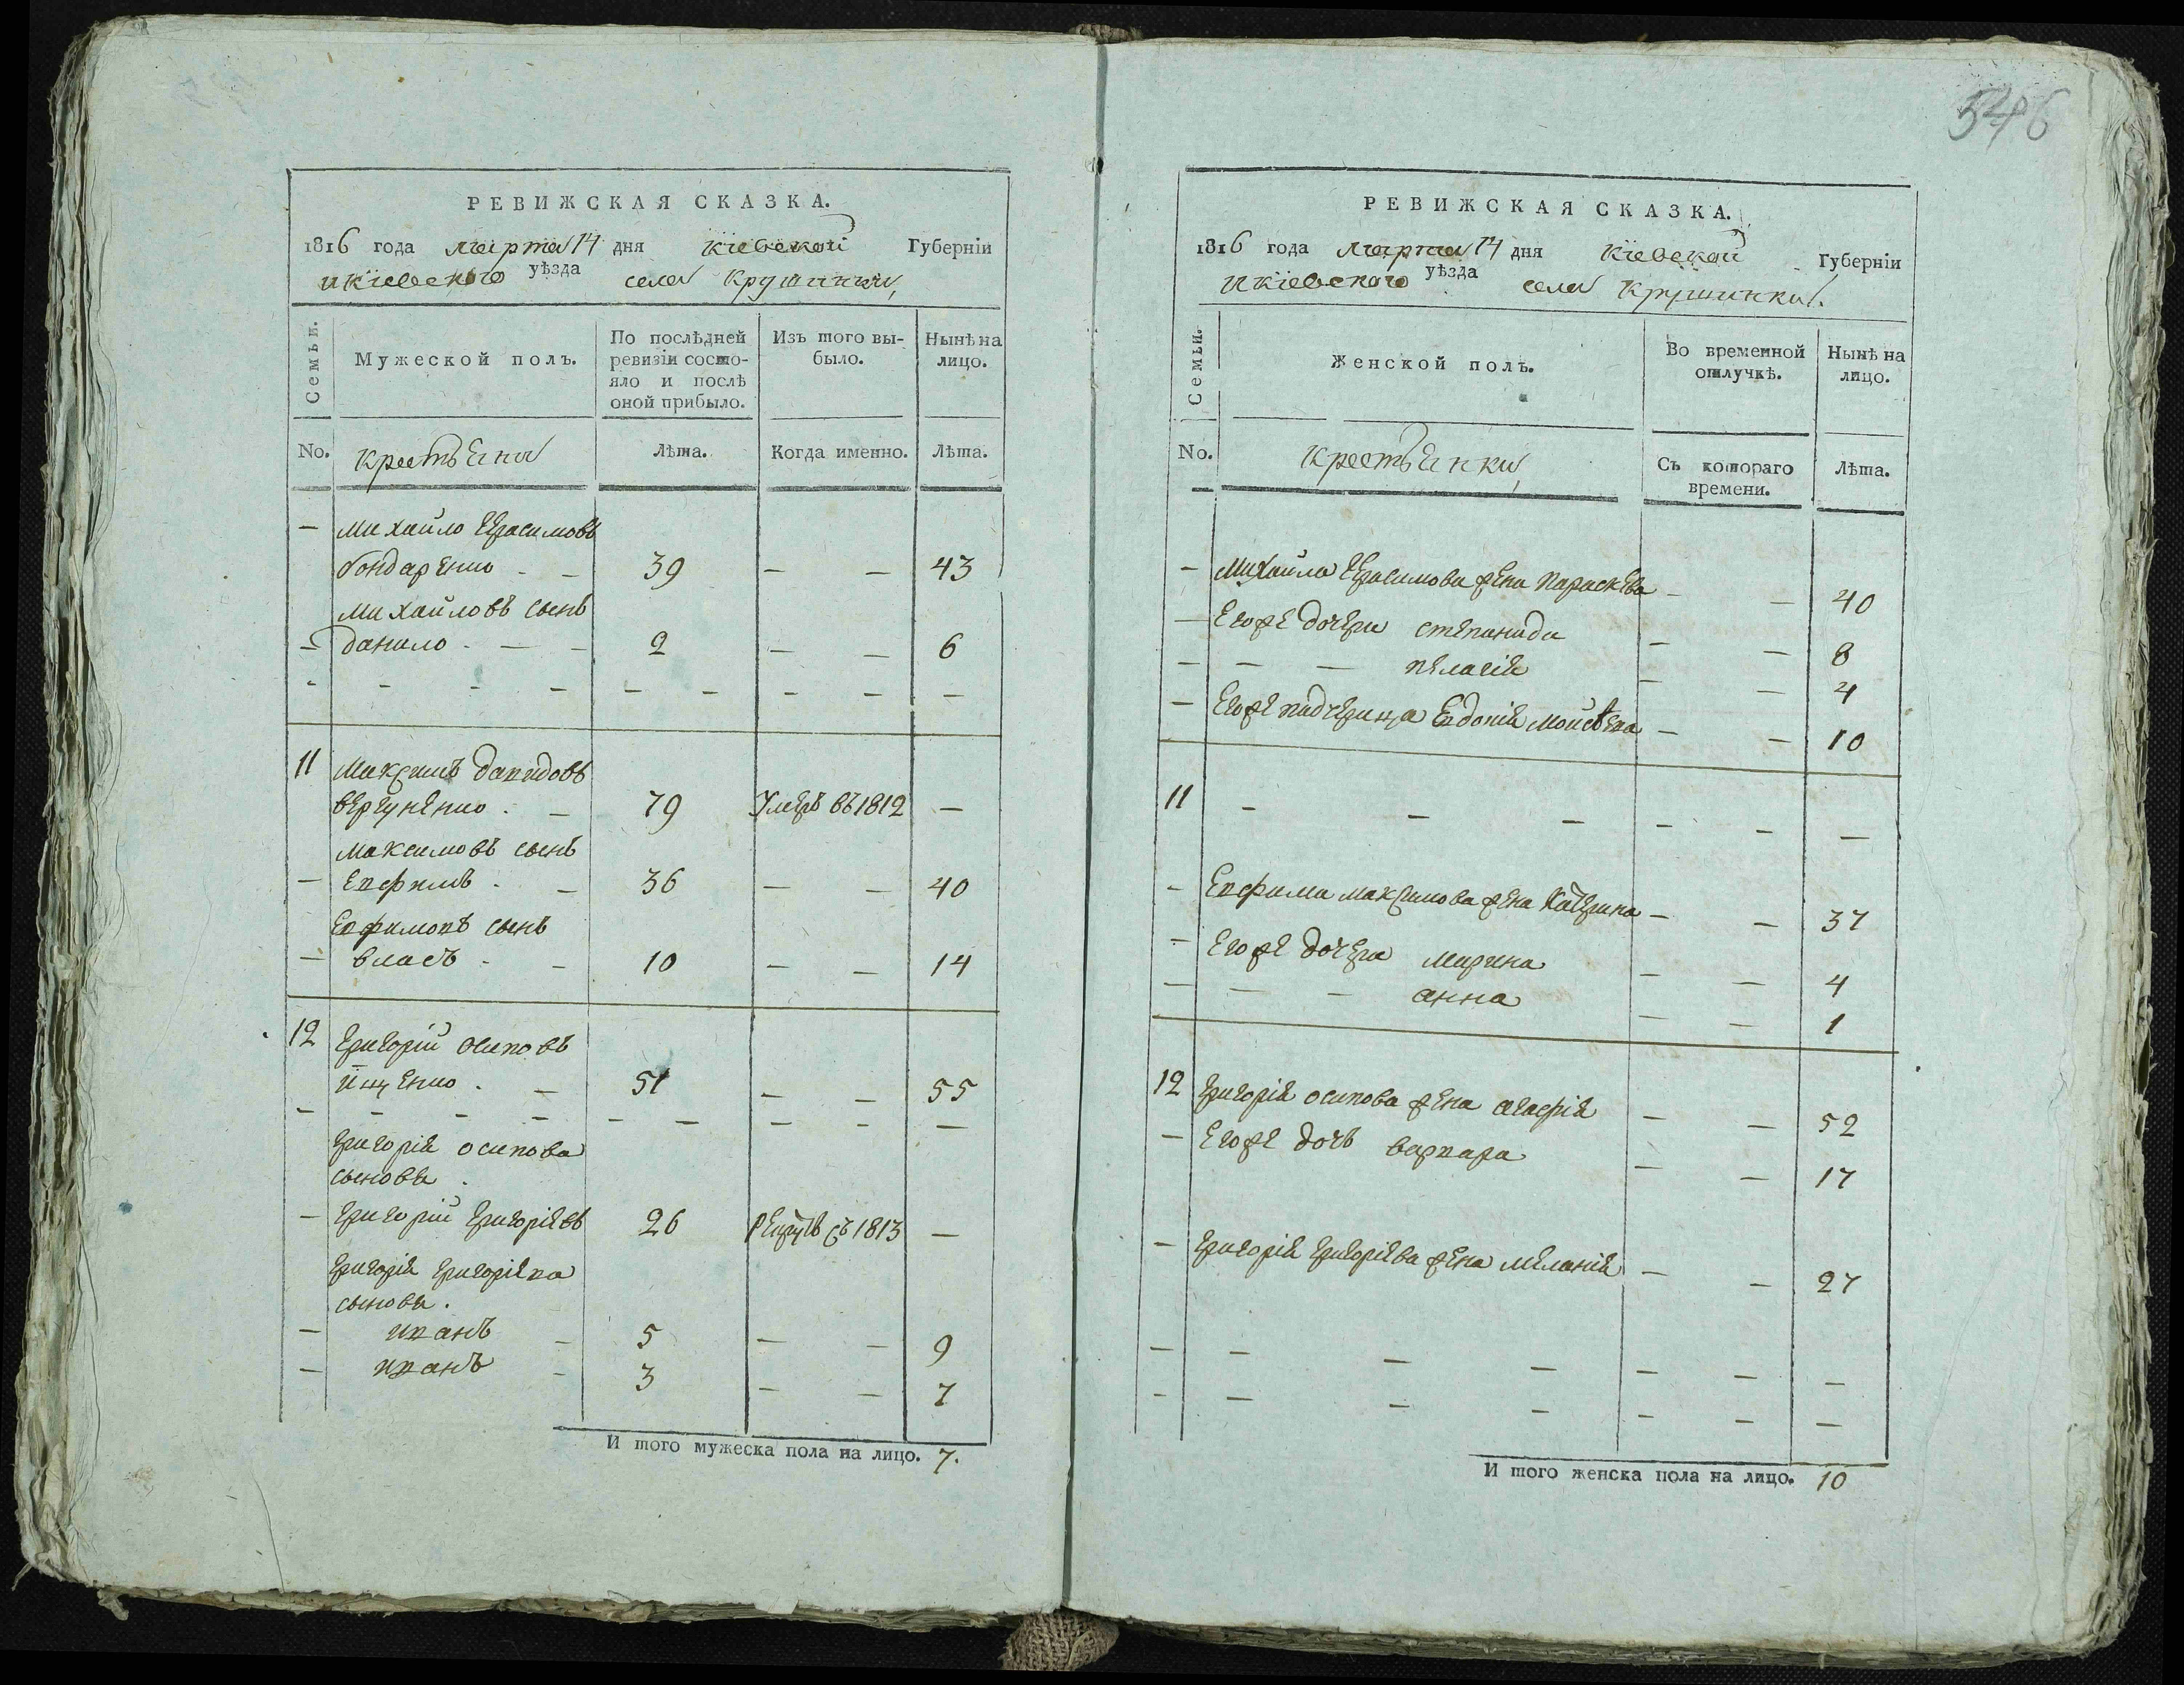 546
РЕВИЖСКАЯ СКАЗКА.
1816 года марта 14 дня Кіевской Губерніи
и Кіевского уѣзда села Крушинки
Семьи.
Мужеской полъ.
По послѣдней ревизіи состояло и послѣ оной прибыло.
Изъ того выбыло.
Нынѣ на лицо.
No. крестьяне Лѣта. Когда именно. Лѣта.
— Михайло Герасимовъ
бондаренко - - 39 — — 43
Михайловъ сынъ
— данило - — - 2 — — 6
- - - - - - - - -
11 Максимъ давидовъ
вергуненко . — 79 Умеръ въ 1812 —
Максимовъ сынъ
— Евфимъ . — 36 — — 40
Евфимовъ сынъ
— власъ - - 10 — — 14
12 Григорій осиповъ
Ищенко . — 51 — — 55
- - - - - - - - -
Григорія осипова
сыновья .
— Григорій Григоріевъ 26 Рекрутъ съ 1813 —
Григорія Григоріева
сыновья .
— иванъ - 5 — - 9
— иванъ - 3 — — 7
И того мужеска пола на лицо. 7.
РЕВИЖСКАЯ СКАЗКА.
1816 года марта 14 дня Кіевской Губерніи
и Кіевского уѣзда села Крушинки.
Семьи.
Женской полъ.
Во временной отлучкѣ.
Нынѣ на лицо.
No. крестьянки Съ котораго времени. Лѣта.
— Михайла Герасимова жена Параскева — — 40
— Егоже дочери степанида — — 8
— — — пелагія — — 4
— Егоже падчерица Евдокія Моисѣева — — 10
11 - — — — — —
- Евфима максимова жена Катерина — — 37
— Егоже дочери марина — — 4
— — - анна — — 1
12 Григорія осипова жена агафія — — 52
— Егоже дочь варвара — — 17
— Григорія Григоріева жена меланія — — 27
— — — — — — —
- — - - - — —
И того женска пола на лицо. 10